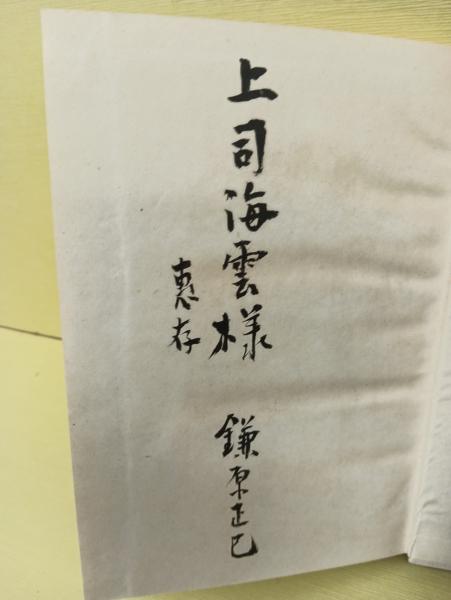 上司海雲様
惠存
鎌原正巳